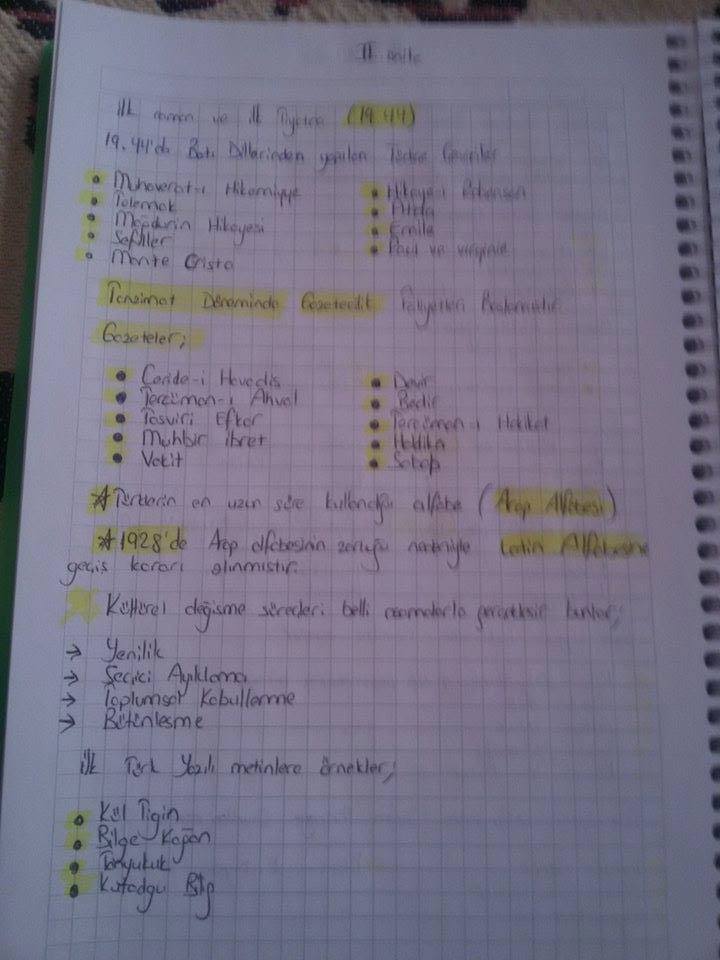 II. ünite
ilk roman ve ilk Tiyatro (19.44)
19.44'da Batı Dillerinden yapılan Türkçe Çeviriler
• Muhaverat-ı Hikemiyye
• Telemak
• Mağdurin Hikayesi
• Sefiller
• Monte Cristo
• Hikaye-i Robenson
• Atala
• Emile
• Paul ve virginie
Tanzimat Döneminde Gazetecilik Faliyetleri Başlamıştır.
Gazeteler;
• Ceride-i Havadis
• Tercüman-ı Ahval
• Tasviri Efkar
• Muhbir ibret
• Vakit
• Devir
• Bedir
• Tercüman-ı Hakikat
• Hadika
• Sabah
* Türklerin en uzun süre kullandığı alfabe (Arap Alfabesi)
* 1928'de Arap alfabesinin zorluğu nedeniyle Latin Alfabesine
geçiş kararı alınmıştır.
Kültürel değişme süreçleri belli aşamalarla gerçekleşir bunlar;
→ Yenilik
→ Seçici Ayıklama
→ Toplumsal Kabullenme
→ Bütünleşme
ilk Türk Yazılı metinlere örnekler;
• Kül Tigin
• Bilge Kağan
• Tonyukuk
• Kutadgu Bilig